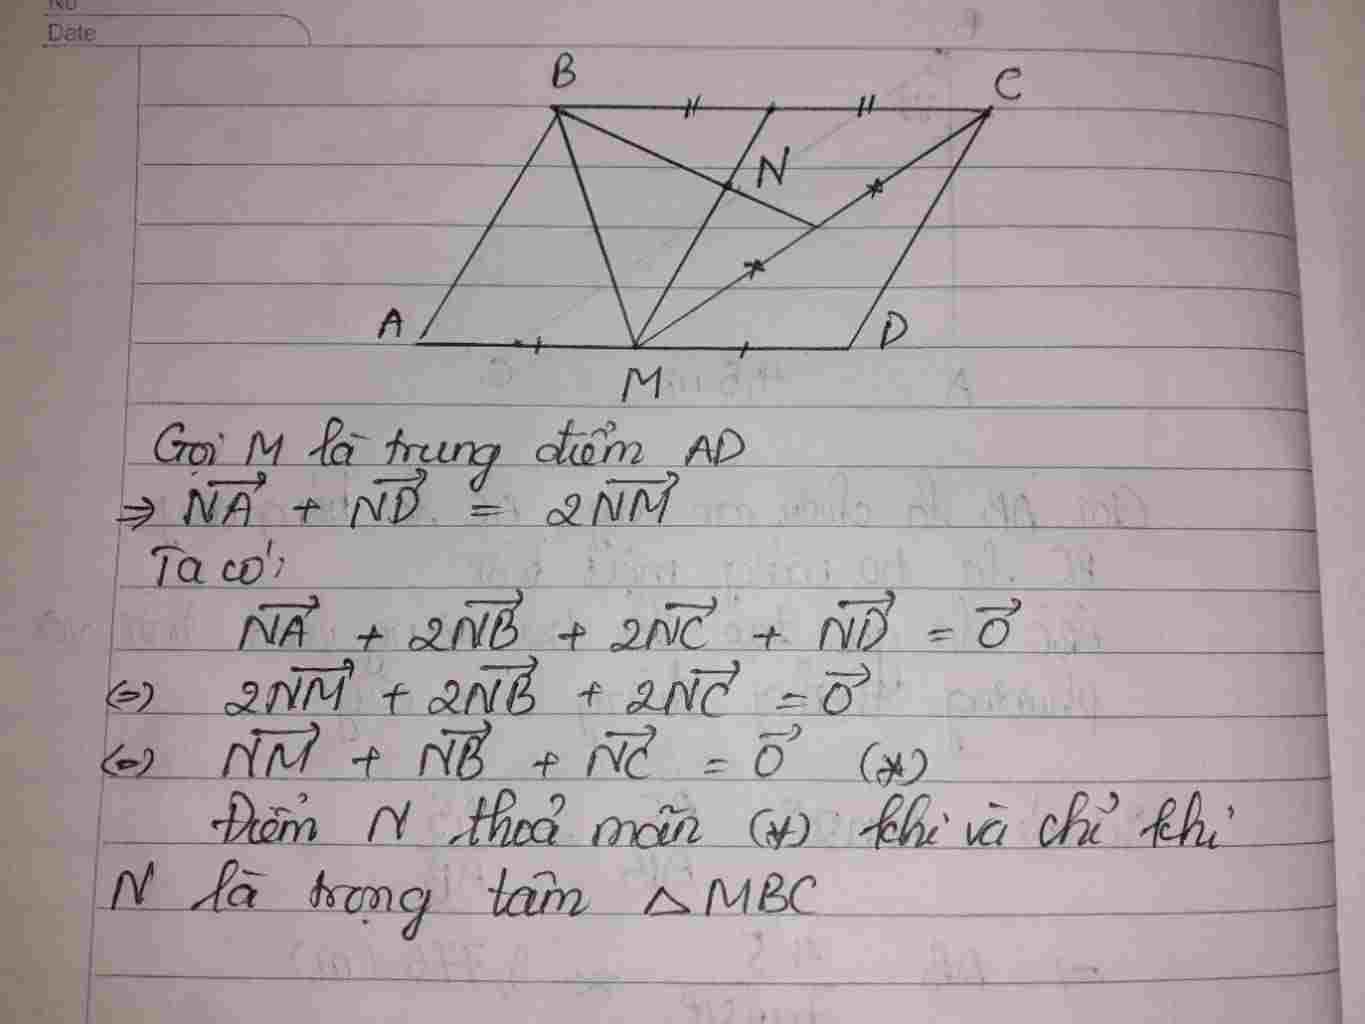 No
Date
B
C
N
A
D
M
Gọi M là trung điểm AD
⇒ $\overrightarrow{NA}$ + $\overrightarrow{ND}$ = 2$\overrightarrow{NM}$
Ta có:
$\overrightarrow{NA}$ + 2$\overrightarrow{NB}$ + 2$\overrightarrow{NC}$ + $\overrightarrow{ND}$ = $\overrightarrow{0}$
(=) 2$\overrightarrow{NM}$ + 2$\overrightarrow{NB}$ + 2$\overrightarrow{NC}$ = $\overrightarrow{0}$
(=) $\overrightarrow{NM}$ + $\overrightarrow{NB}$ + $\overrightarrow{NC}$ = $\overrightarrow{0}$ (*)
Điểm N thoả mãn (*) khi và chỉ khi
N là trọng tâm △MBC